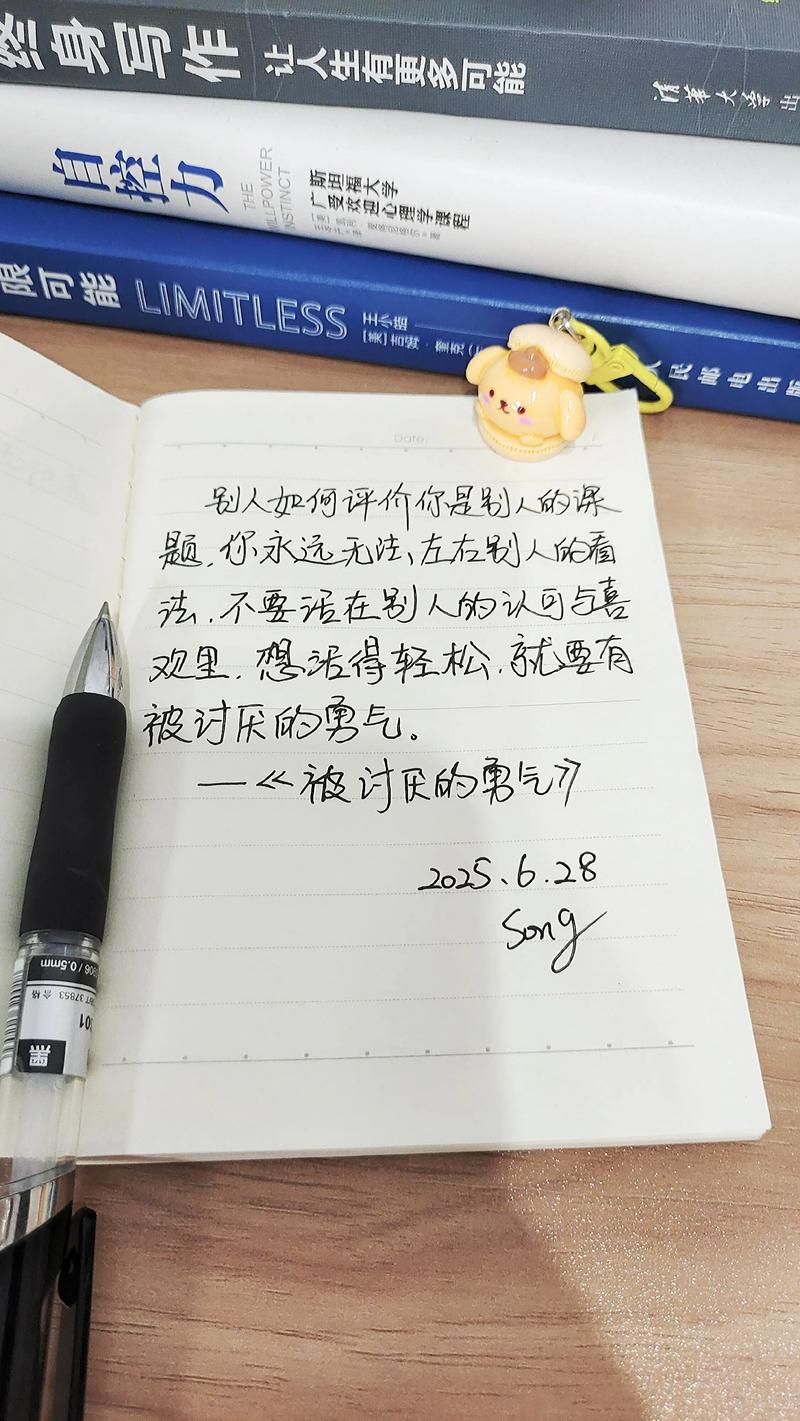 终身写作 让人生有更多可能 清华大学出
自控力 THE WILLPOWER INSTINCT 斯坦福大学
广受欢迎心理学课程
限可能 LIMITLESS 王小皓
[美]吉姆·奎克 人民邮电出版
Date:
别人如何评价你是别人的课
题,你永远无法、左右别人的看
法,不要活在别人的认可与喜
欢里,想活得轻松,就要有
被讨厌的勇气。
—《被讨厌的勇气》
2025.6.28
Song
/0.5mm
37853 合格
黑